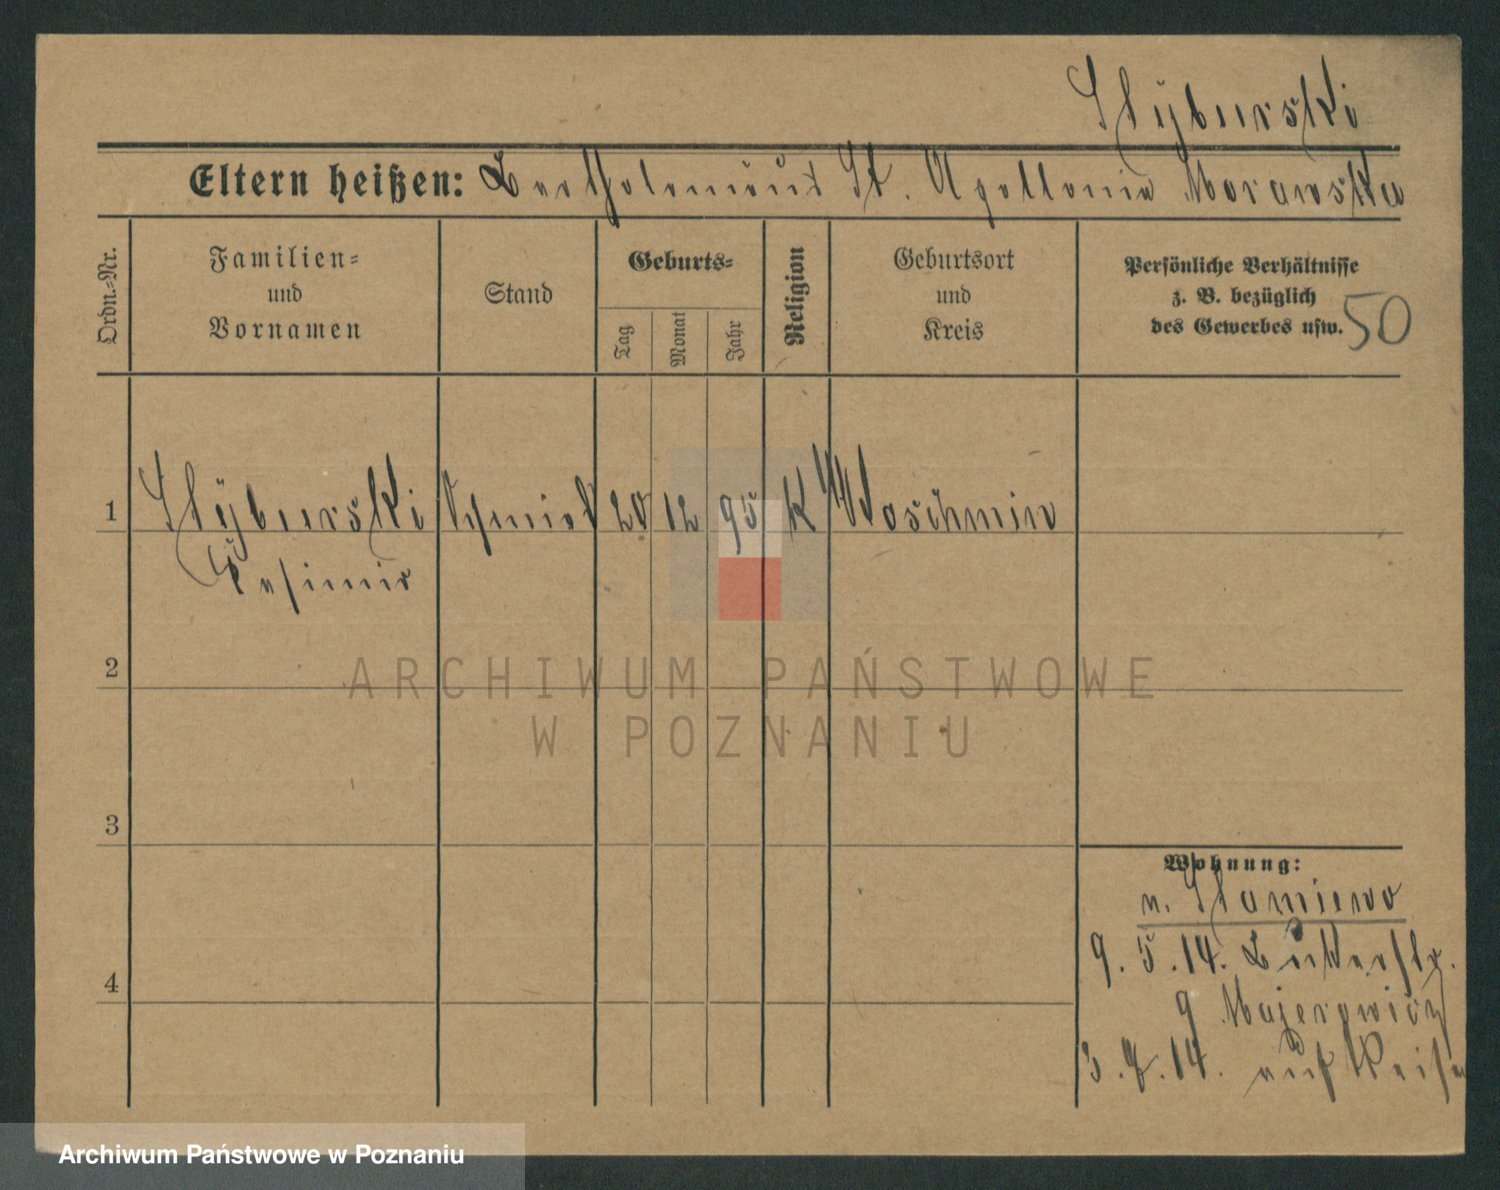 Styburski
Eltern heißen: Bartholomäus St. Apollonia Morawska
Ordn.-Nr.
Familien-
und
Vornamen
Stand
Geburts-
Tag
Monat
Jahr
Religion
Geburtsort
und
Kreis
Persönliche Verhältnisse
z. B. bezüglich
des Gewerbes usw.
50
1
Styburski
Kasimir
Schmied
20
12
95
K
Woschmin
2
3
4
Wohnung:
n. Staniewo
9. 5. 14. Bäckerstr.
9 Majerowicz
3. 8. 14. auf Reisen
ARCHIWUM PAŃSTWOWE
W POZNANIU
Archiwum Państwowe w Poznaniu